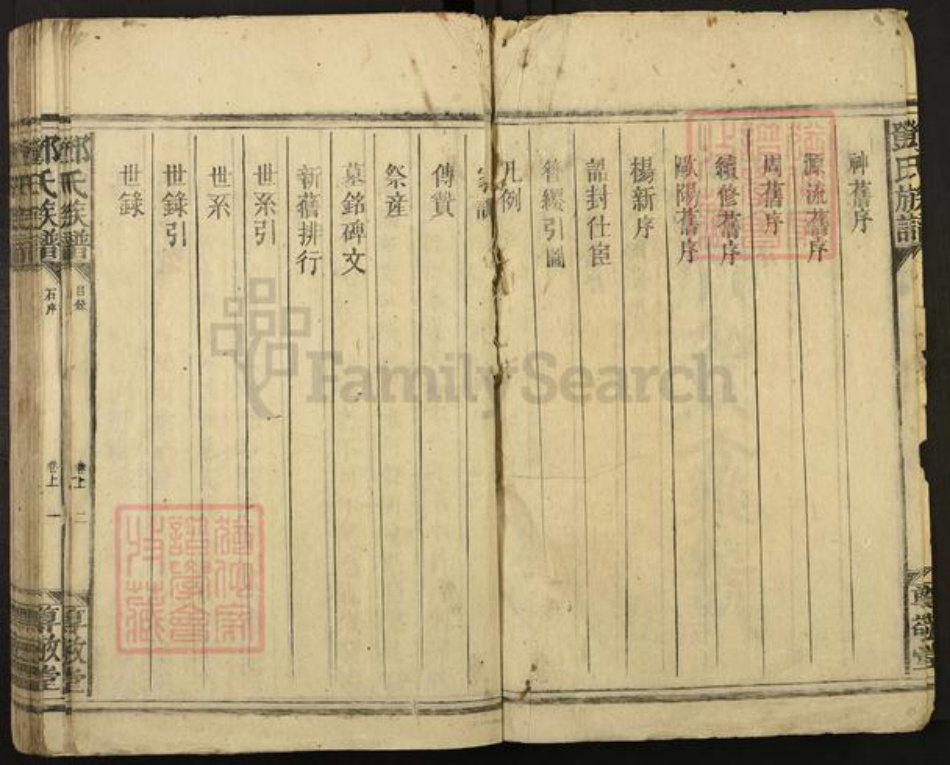 鄧氏族譜
尊敬堂
神舊序
源流舊序
周舊序
續修舊序
歐陽舊序
楊新序
誥封仕宦
凡例
家訓
傳贊
祭産
墓銘碑文
新舊排行
世系引
世系
世錄引
世錄
鄧氏族譜
目錄
卷上
二
尊敬堂
鄧氏族譜
卷上
一
尊敬堂
FamilySearch